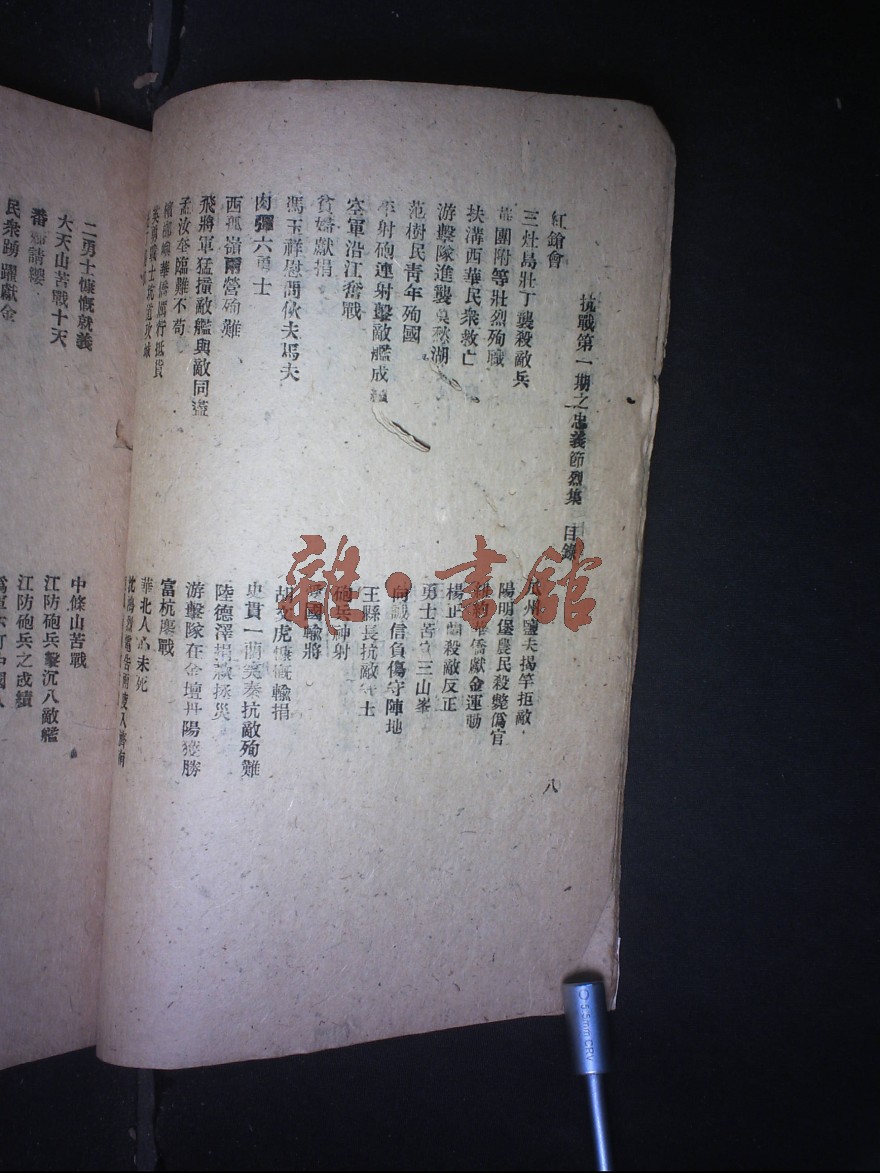 抗戰第一期之忠義節烈集 目錄
八
紅鎗會
三灶島壯丁襲殺敵兵
團附等壯烈殉職
扶溝西華民衆救亡
游擊隊進襲
范樹民青年殉國
射砲連射擊敵艦成
空軍沿江奮戰
貧婦獻捐
馮玉祥慰問伙夫馬夫
肉彈六勇士
西孤嶺兩營殉難
飛將軍猛撞敵艦與敵同盡
孟汝奎臨難不苟
華僑厲行抵貨
瓜州鹽夫揭竿拒敵
陽明堡農民殺斃僞官
華僑獻金運動
楊正 殺敵反正
勇士苦 三山峯
向誠信負傷守陣地
王縣長抗敵 士
砲兵神射
國輸將
胡文虎慷慨輸捐
史貫一蘭 秦抗敵殉難
陸德澤捐 拯災
游擊隊在金壇丹陽獲勝
富杭鏖戰
華北人心未死
二勇士慷慨就義
大天山苦戰十天
請纓
民衆踴躍獻金
中條山苦戰
江防砲兵擊沉八敵艦
江防砲兵之成績
雜·書館
0.5mm